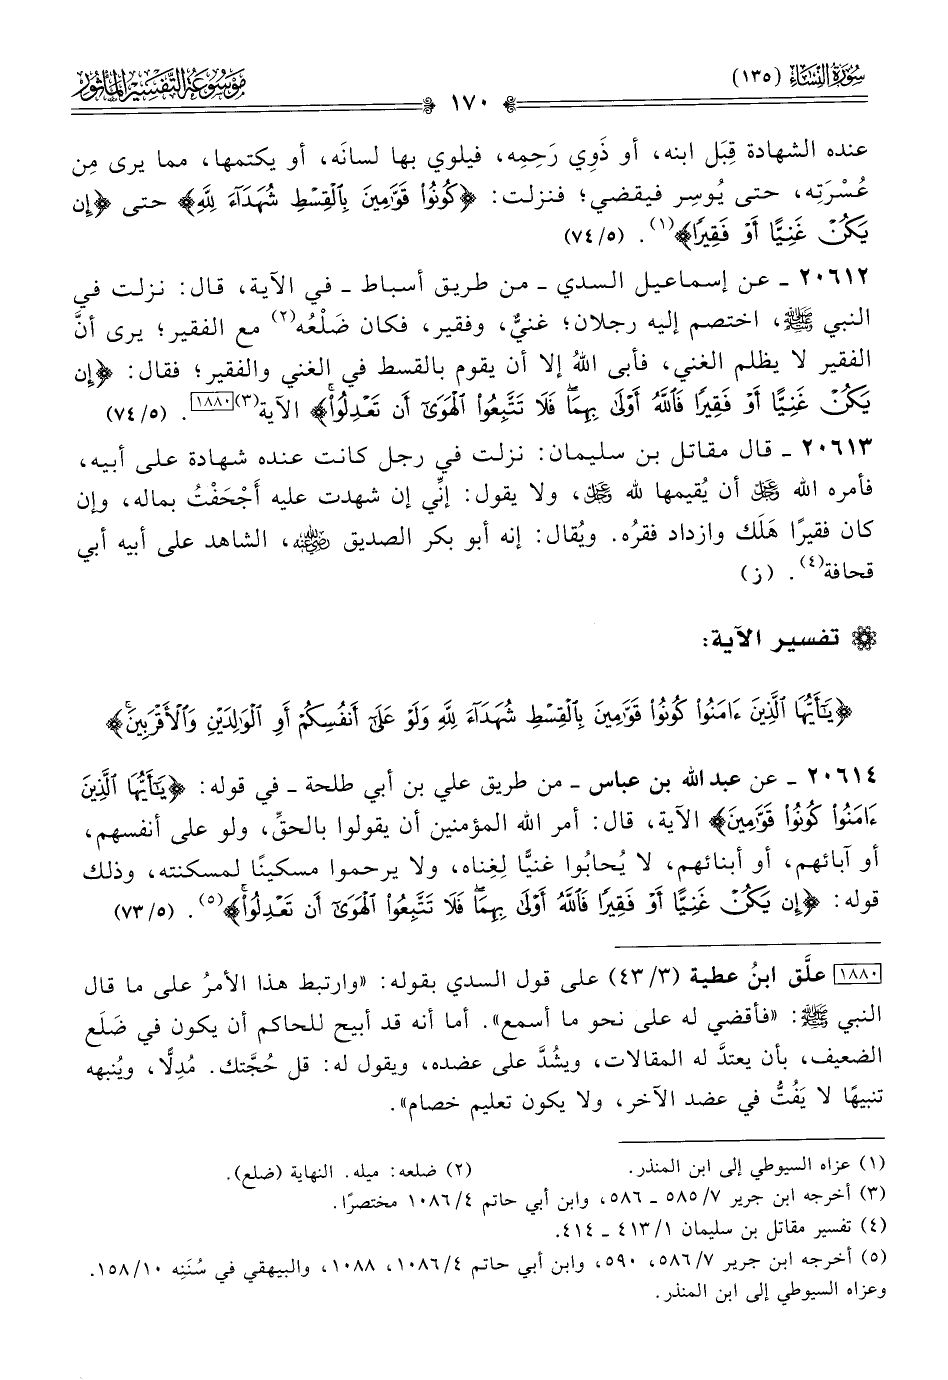 سُورَةُ النِّسَاءِ (١٣٥)
١٧٠
مَوْسُوعَةُ التَّفْسِيرِ المَأْثُورِ
عنده الشهادة قِبَل ابنه، أو ذَوِي رَحِمِه، فيلوي بها لسانَه، أو يكتمها، مما يرى مِن
عُسْرَتِه، حتى يُوسِر فيقضي؛ فنزلت: ﴿كُونُوا۟ قَوَّٰمِينَ بِٱلْقِسْطِ شُهَدَآءَ لِلَّهِ﴾ حتى ﴿إِن
يَكُنْ غَنِيًّا أَوْ فَقِيرًا﴾(١). (٥/ ٧٤)
٢٠٦١٢ ـ عن إسماعيل السدي ـ من طريق أسباط ـ في الآية، قال: نزلت في
النبي ﷺ، اختصم إليه رجلان؛ غنيٌّ، وفقير، فكان ضَلْعُه(٢) مع الفقير؛ يرى أنَّ
الفقير لا يظلم الغني، فأبى اللهُ إلا أن يقوم بالقسط في الغني والفقير؛ فقال: ﴿إِن
يَكُنْ غَنِيًّا أَوْ فَقِيرًا فَٱللَّهُ أَوْلَىٰ بِهِمَا ۖ فَلَا تَتَّبِعُوا۟ ٱلْهَوَىٰٓ أَن تَعْدِلُوا۟ ۚ﴾ الآية(٣)[١٨٨٠]. (٥/ ٧٤)
٢٠٦١٣ ـ قال مقاتل بن سليمان: نزلت في رجل كانت عنده شهادة على أبيه،
فأمره الله ﷿ أن يُقيمها لله ﷿، ولا يقول: إنِّي إن شهدت عليه أجْحَفْتُ بماله، وإن
كان فقيرًا هَلَك وازداد فقرُه. ويُقال: إنه أبو بكر الصديق رضي الله عنه، الشاهد على أبيه أبي
قحافة(٤). (ز)
تفسير الآية:
﴿يَٰٓأَيُّهَا ٱلَّذِينَ ءَامَنُوا۟ كُونُوا۟ قَوَّٰمِينَ بِٱلْقِسْطِ شُهَدَآءَ لِلَّهِ وَلَوْ عَلَىٰٓ أَنفُسِكُمْ أَوِ ٱلْوَٰلِدَيْنِ وَٱلْأَقْرَبِينَ ۚ﴾
٢٠٦١٤ ـ عن عبد الله بن عباس ـ من طريق علي بن أبي طلحة ـ في قوله: ﴿يَٰٓأَيُّهَا ٱلَّذِينَ
ءَامَنُوا۟ كُونُوا۟ قَوَّٰمِينَ﴾ الآية، قال: أمر الله المؤمنين أن يقولوا بالحقِّ، ولو على أنفسهم،
أو آبائهم، أو أبنائهم، لا يُحابُوا غنيًّا لِغِناه، ولا يرحموا مسكينًا لمسكنته، وذلك
قوله: ﴿إِن يَكُنْ غَنِيًّا أَوْ فَقِيرًا فَٱللَّهُ أَوْلَىٰ بِهِمَا ۖ فَلَا تَتَّبِعُوا۟ ٱلْهَوَىٰٓ أَن تَعْدِلُوا۟ ۚ﴾(٥). (٥/ ٧٣)
[١٨٨٠] علَّق ابنُ عطية (٣/ ٤٣) على قول السدي بقوله: «وارتبط هذا الأمرُ على ما قال
النبي ﷺ: «فأقضي له على نحو ما أسمع». أما أنه قد أبيح للحاكم أن يكون في ضَلَع
الضعيف، بأن يعتدَّ له المقالات، ويشُدَّ على عضده، ويقول له: قل حُجَّتك. مُدِلًّا، ويُنبهه
تنبيهًا لا يَفُتُّ في عضد الآخر، ولا يكون تعليم خصام».
(١) عزاه السيوطي إلى ابن المنذر. (٢) ضلعه: ميله. النهاية (ضلع).
(٣) أخرجه ابن جرير ٧/ ٥٨٥ ـ ٥٨٦، وابن أبي حاتم ٤/ ١٠٨٦ مختصرًا.
(٤) تفسير مقاتل بن سليمان ١/ ٤١٣ ـ ٤١٤.
(٥) أخرجه ابن جرير ٧/ ٥٨٦، ٥٩٠، وابن أبي حاتم ٤/ ١٠٨٦، ١٠٨٨، والبيهقي في سُنَنِه ١٠/ ١٥٨.
وعزاه السيوطي إلى ابن المنذر.